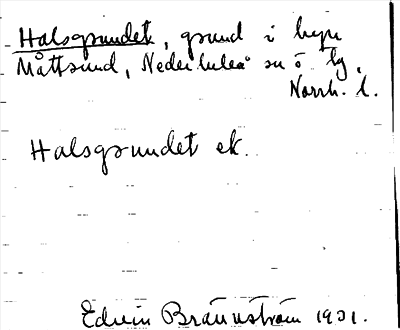 Halsgrundet, grund i byn
Måttsund, Nederluleå sn ö lg,
Norrb. l.
Halsgrundet ek.
Edvin Brännström 1931.